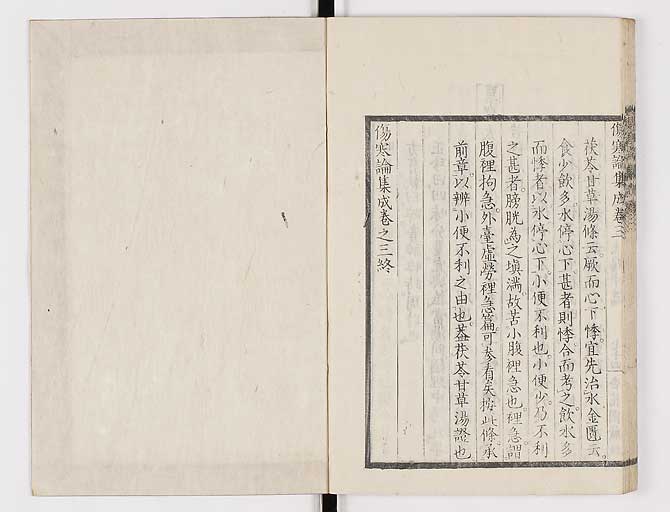 傷寒論集成卷三
茯苓甘草湯條云。厥而心下悸。宜先治水金匱云。
食少飲多。水停心下甚者則悸。合而考之。飲水多
而悸者。以水停心下。小便不利也。小便少。乃不利
之甚者。膀胱為之填滿。故苦小腹裡急也。裡急謂
腹裡拘急。外臺虛勞裡急篇。可參看矣。按此條承
前章。以辨小便不利之由也。蓋茯苓甘草湯證也
傷寒論集成卷之三終